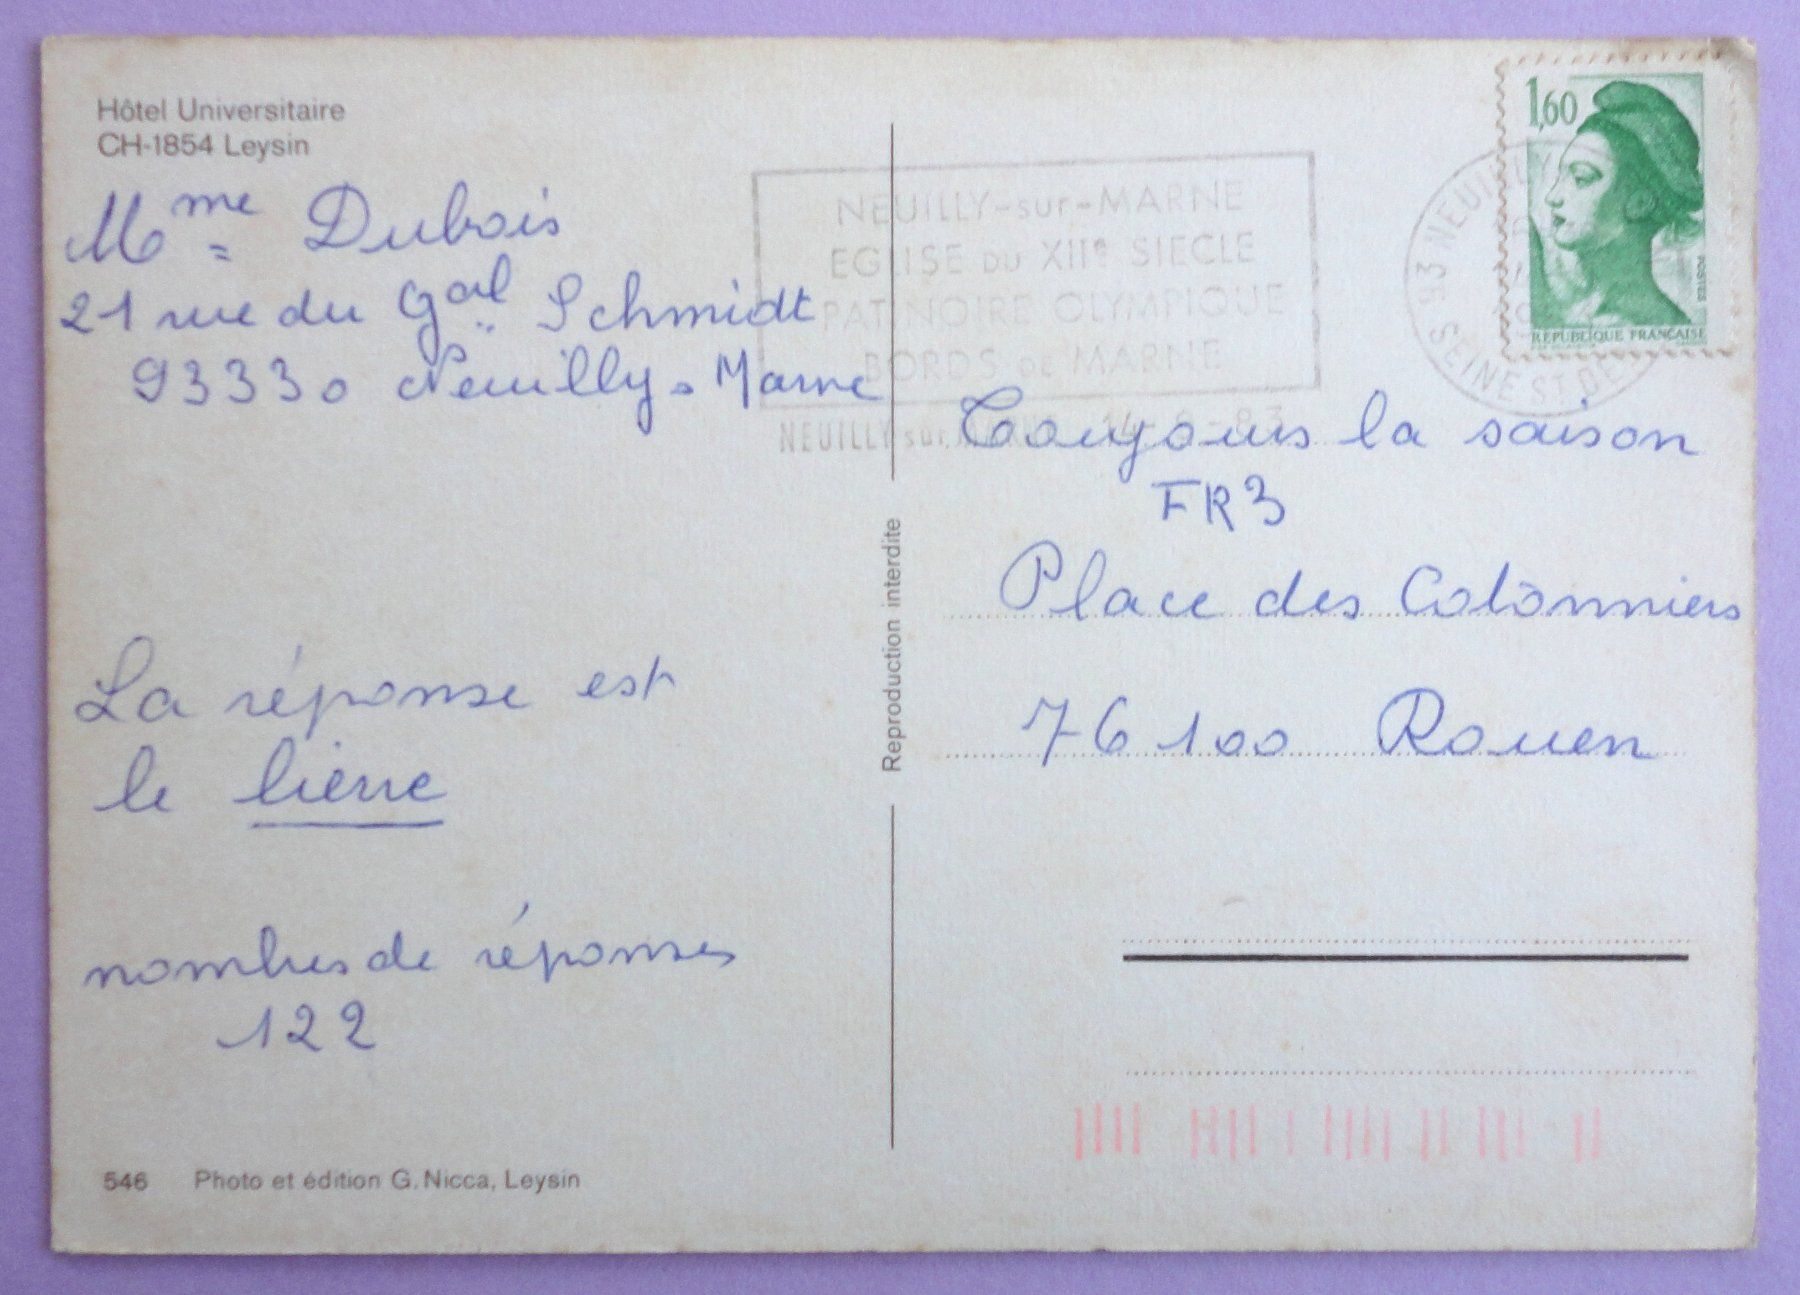 Hôtel Universitaire
CH-1854 Leysin
Mme Dubois
21 rue du Gal Schmidt
93330 Neuilly s Marne
La réponse est
le lierre
nombres de réponses
122
546 Photo et édition G. Nicca, Leysin
Reproduction interdite
NEUILLY-sur-MARNE
EGLISE DU XIIe SIECLE
PATINOIRE OLYMPIQUE
BORDS DE MARNE
NEUILLY sur
93 NEUILLY
SEINE ST DE
1,60
POSTES
REPUBLIQUE FRANÇAISE
Toujours la saison
FR3
Place des Cotonniers
76100 Rouen